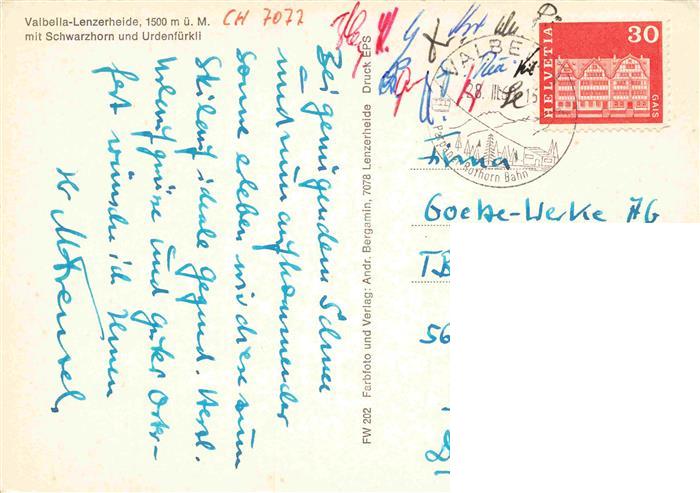 Valbella-Lenzerheide, 1500 m ü. M.
mit Schwarzhorn und Urdenfürkli
CH 7077
Bei genügendem Schnee
und nun aufkommender
Sonne erleben wir diese zum
Skilauf ideale Gegend. Herzl.
Urlaubgrüße und gutes Oster-
fest wünsche ich Ihnen
Ihr
FW 202 Farbfoto und Verlag: Andr. Bergamin, 7078 Lenzerheide Druck EPS
VALBE
28. III.
Rothorn Bahn
HELVETIA
30
GAIS
Firma
Goetze-Werke AG
56